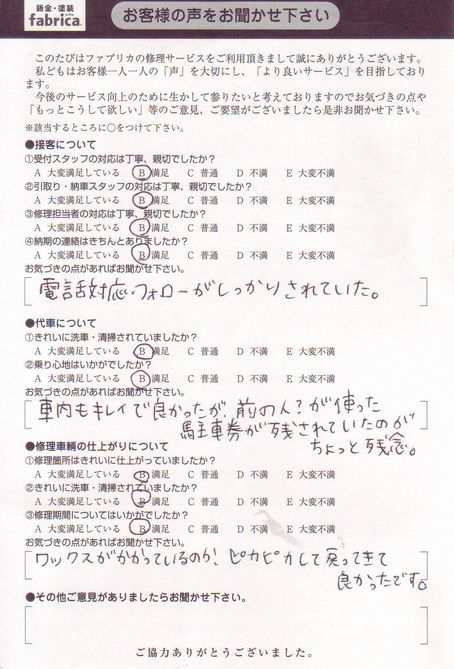 鈑金・塗装
fabrica.
お客様の声をお聞かせ下さい
このたびはファブリカの修理サービスをご利用頂きまして誠にありがとうございます。
私どもはお客様一人一人の「声」を大切にし、「より良いサービス」を目指しており
ます。
今後のサービス向上のために生かして参りたいと考えておりますのでお気づきの点や
「もっとこうして欲しい」等のご意見、ご要望がございましたら是非お聞かせ下さい。
※該当するところに○をつけて下さい。
●接客について
①受付スタッフの対応は丁寧、親切でしたか?
A 大変満足している B 満足 C 普通 D 不満 E 大変不満
②引取り・納車スタッフの対応は丁寧、親切でしたか?
A 大変満足している B 満足 C 普通 D 不満 E 大変不満
③修理担当者の対応は丁寧、親切でしたか?
A 大変満足している B 満足 C 普通 D 不満 E 大変不満
④納期の連絡はきちんとありましたか?
A 大変満足している B 満足 C 普通 D 不満 E 大変不満
お気づきの点があればお聞かせ下さい。
電話対応・フォローがしっかりされていた。
●代車について
①きれいに洗車・清掃されていましたか?
A 大変満足している B 満足 C 普通 D 不満 E 大変不満
②乗り心地はいかがでしたか?
A 大変満足している B 満足 C 普通 D 不満 E 大変不満
お気づきの点があればお聞かせ下さい。
車内もキレイで良かったが、前の人?が使った
駐車券が残されていたのが
ちょっと残念。
●修理車輌の仕上がりについて
①修理箇所はきれいに仕上がっていましたか?
A 大変満足している B 満足 C 普通 D 不満 E 大変不満
②きれいに洗車・清掃されていましたか?
A 大変満足している B 満足 C 普通 D 不満 E 大変不満
③修理期間についてはいかがでしたか?
A 大変満足している B 満足 C 普通 D 不満 E 大変不満
お気づきの点があればお聞かせ下さい。
ワックスがかかっているのか、ピカピカして戻ってきて
良かったです。
●その他ご意見がありましたらお聞かせ下さい。
ご協力ありがとうございました。